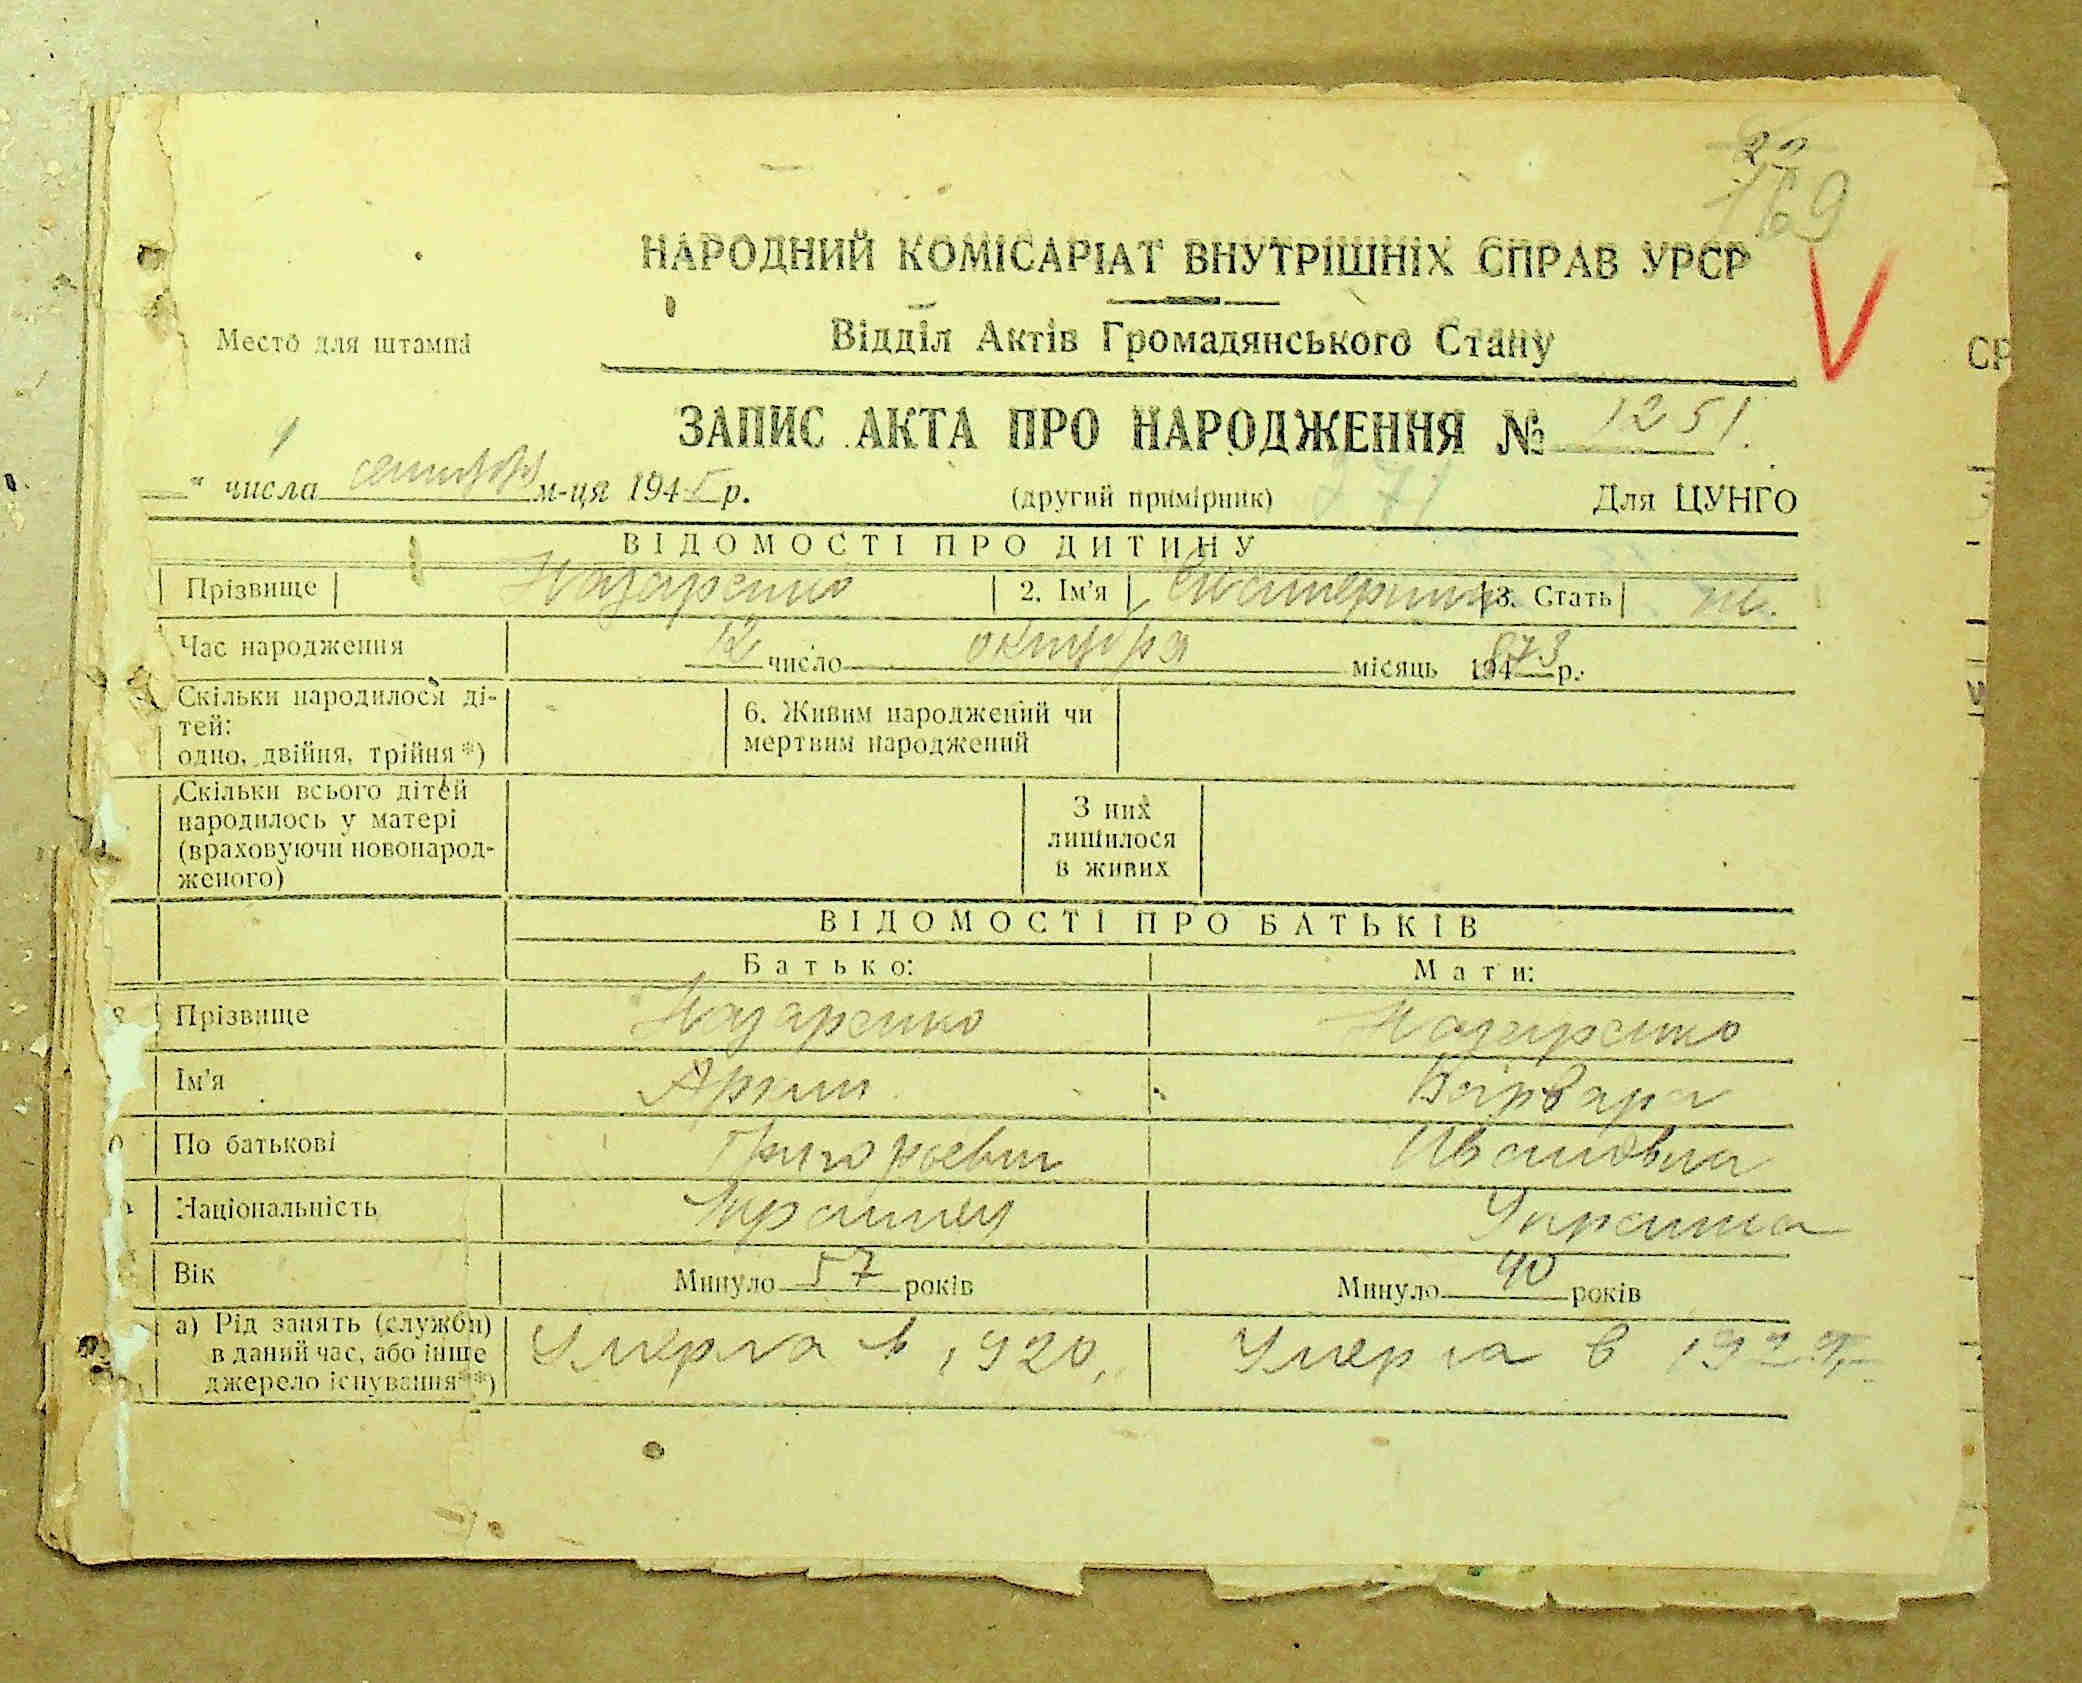 22
169
НАРОДНИЙ КОМІСАРІАТ ВНУТРІШНІХ СПРАВ УРСР
Место для штампа
Відділ Актів Громадянського Стану
СР
ЗАПИС АКТА ПРО НАРОДЖЕННЯ № 1251.
" числа м-ця 1945 р.
(другий примірник) 271 Для ЦУНГО
ВІДОМОСТІ ПРО ДИТИНУ
Прізвище Назаренко 2. Ім'я Екатерина 3. Стать ж.
Час народження 12 число октября місяць 1873 р.
Скільки народилося ді-
тей:
одно, двійня, трійня *)
6. Живим народжений чи
мертвим народжений
Скільки всього дітей
народилось у матері
(враховуючи новонарод-
женого)
З них
лишилося
в живих
ВІДОМОСТІ ПРО БАТЬКІВ
Батько: Мати:
8 Прізвище Назаренко Назаренко
Ім'я Варвара
По батькові Григорьевич Ивановна
Національність Украинец Украинка
Вік Минуло 57 років Минуло 40 років
а) Рід занять (служби)
в даний час, або інше
джерело існування**)
Умерла в 1920, Умерла в